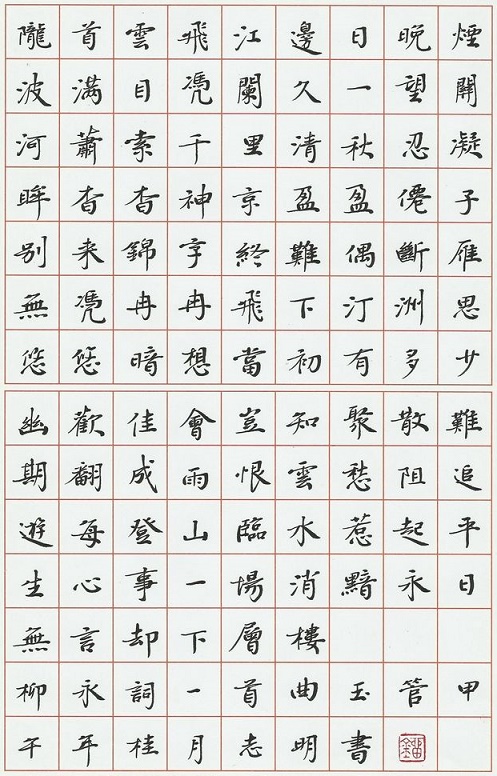 隴首雲飛江邊日晚煙
波滿目凴闌久一望關
河蕭索千里清秋忍凝
眸杳杳神京盈盈僊子
别来錦字終難偶斷雁
無凴冉冉飛下汀洲思
悠悠暗想當初有多少
幽歡佳會豈知聚散難
期翻成雨恨雲愁阻追
遊每登山臨水惹起平
生心事一場消黯永日
無言却下層樓
柳永詞一首曲玉管甲
午年桂月志明書